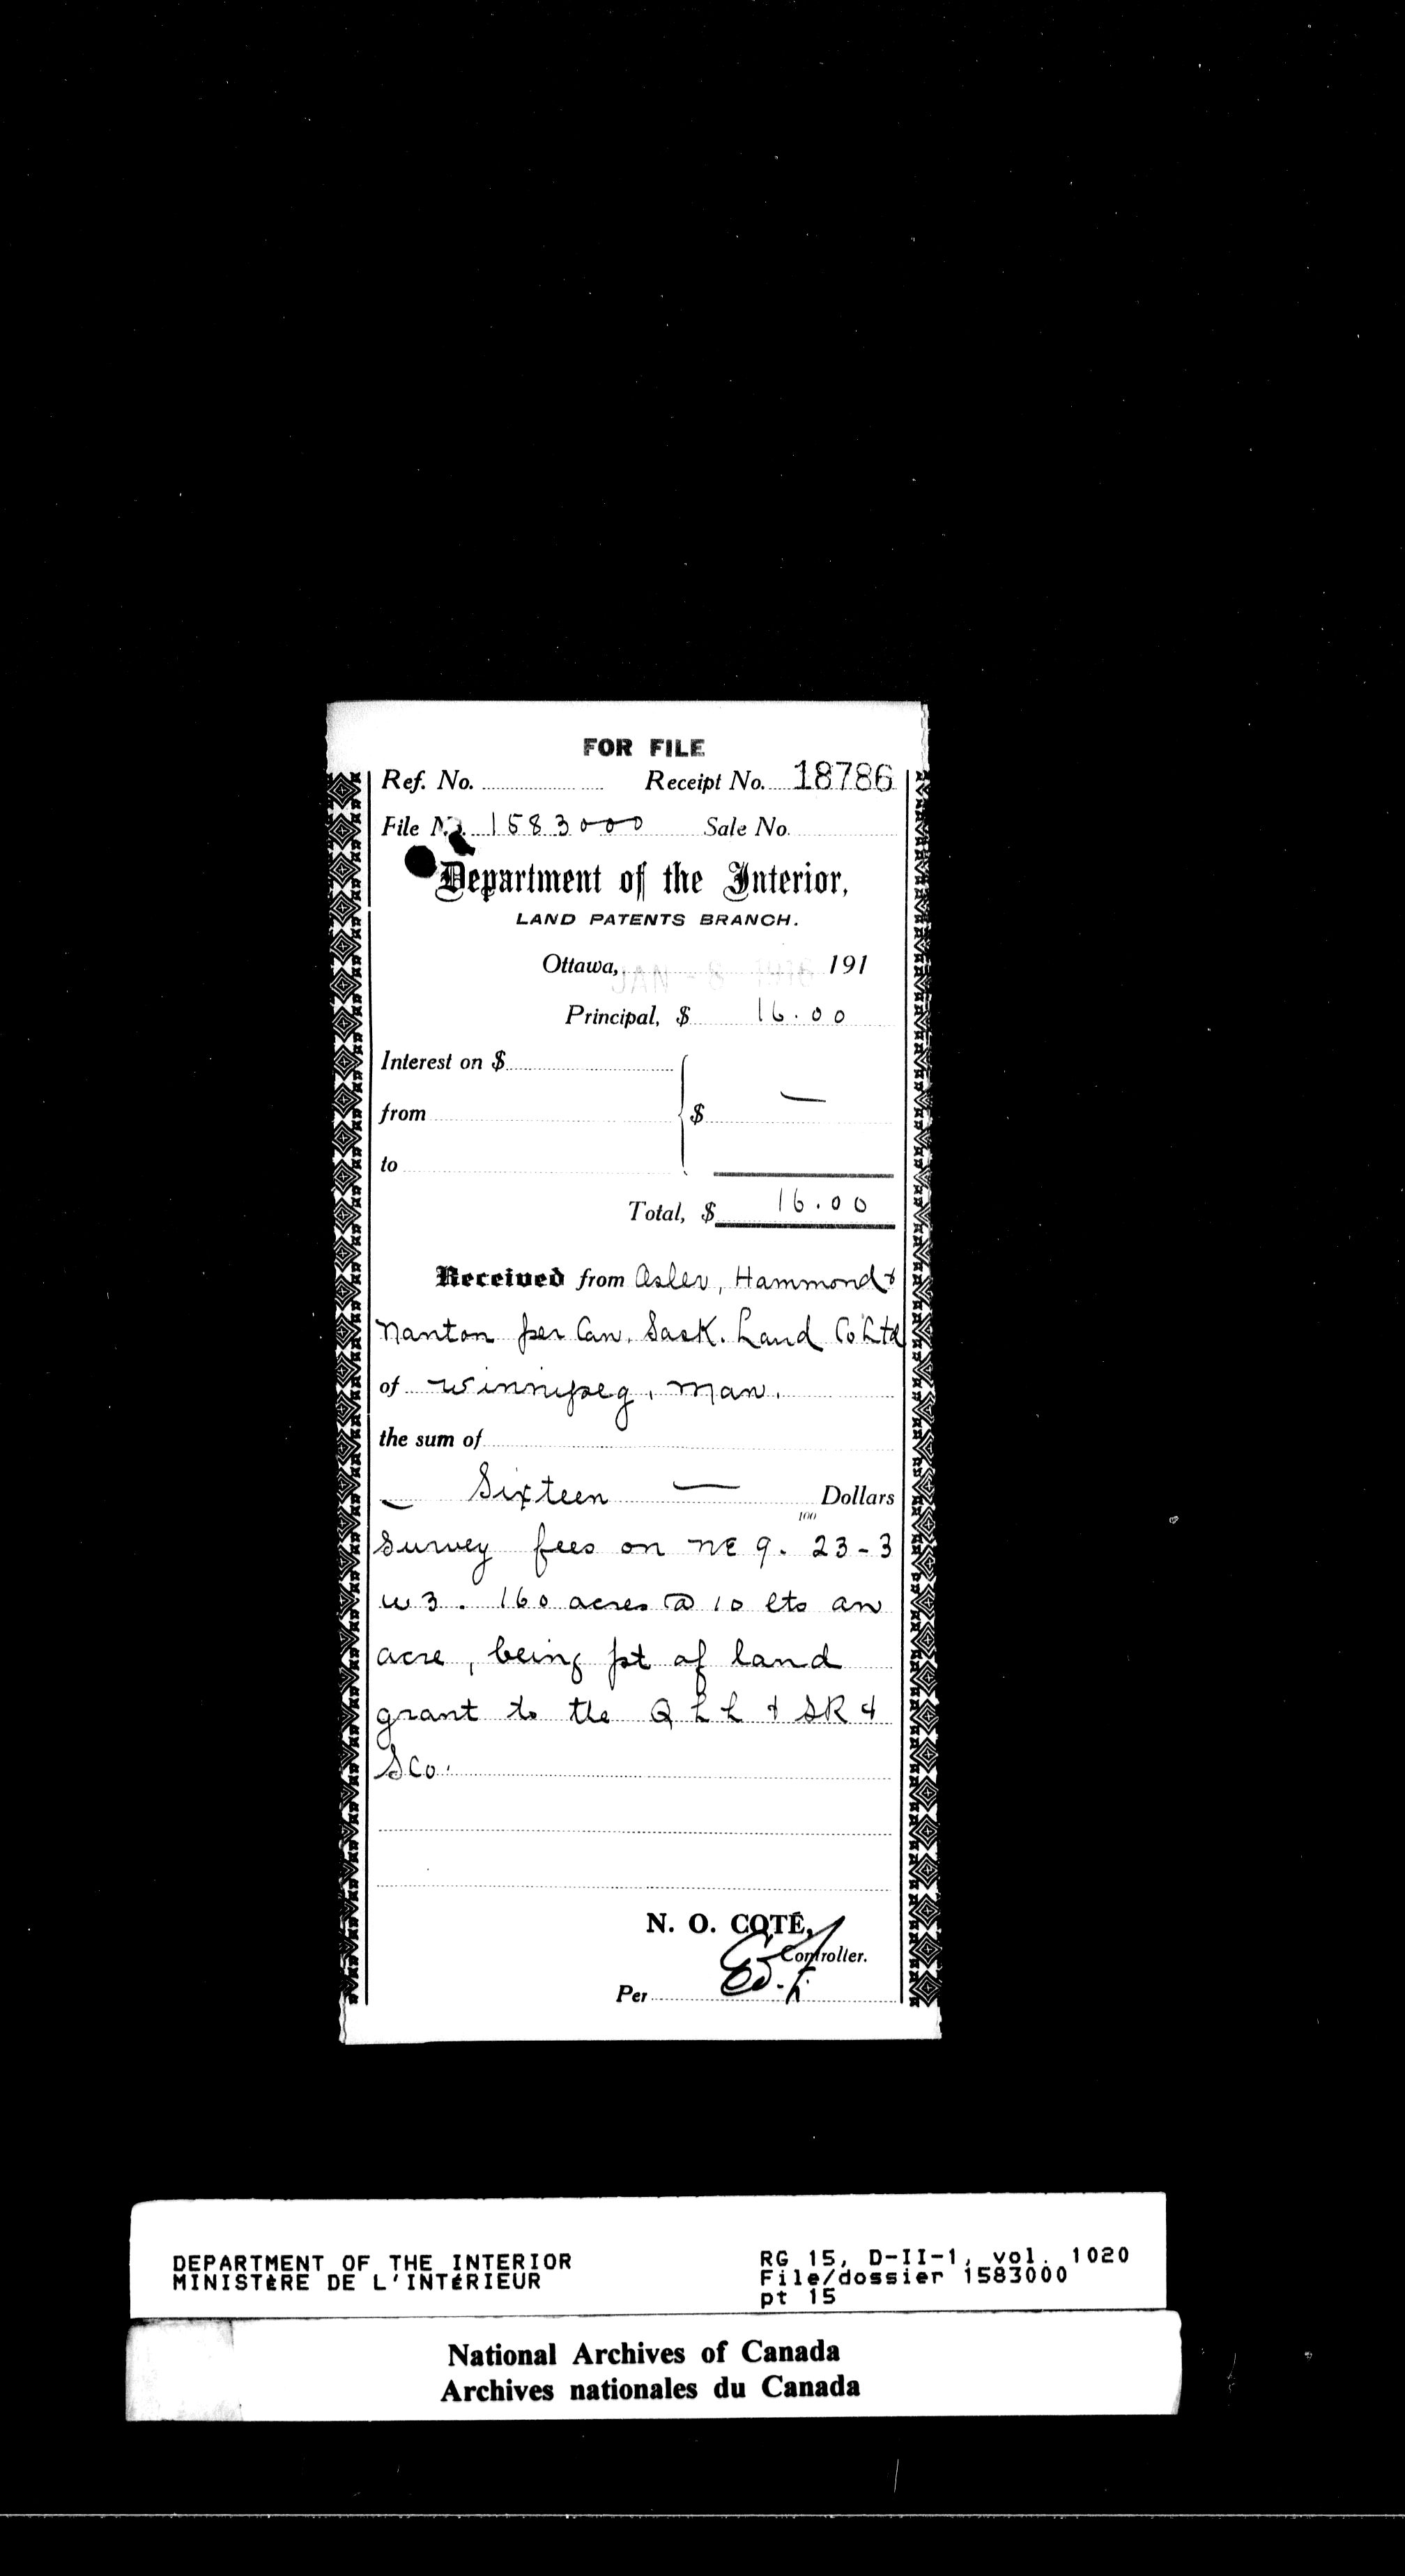 FOR FILE
Ref. No. Receipt No. 18786
File No. 1583000 Sale No.
Department of the Interior,
LAND PATENTS BRANCH.
Ottawa, JAN - 8 1916 191
Principal, $ 16.00
Interest on $
from $ —
to
Total, $ 16.00
Received from Osler, Hammond &
Nanton per Can. Sask. Land Co Ltd
of Winnipeg, Man.
the sum of
— Sixteen — Dollars
100
Survey fees on NE 9. 23-3
W 3. 160 acres @ 10 cts an
acre, being pt of land
grant to the Q L L & SR &
S Co.
N. O. COTÉ,
Controller.
Per
DEPARTMENT OF THE INTERIOR
MINISTÈRE DE L'INTÉRIEUR
RG 15, D-II-1, vol. 1020
File/dossier 1583000
pt 15
National Archives of Canada
Archives nationales du Canada